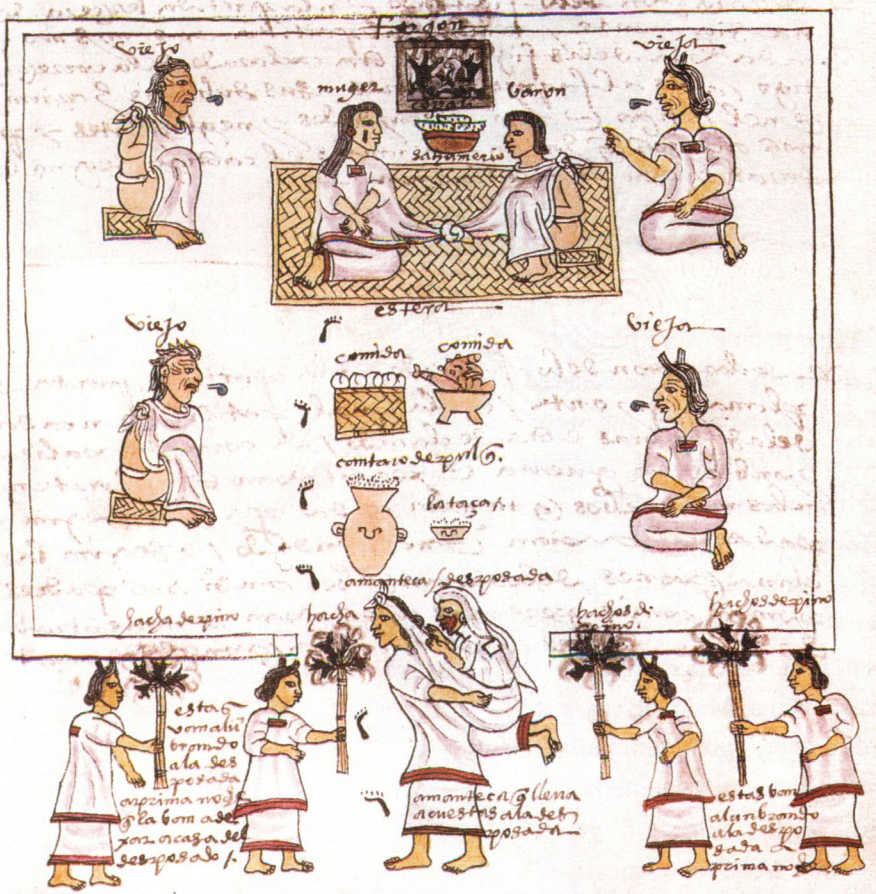 Fogon
viejo
vieja
muger
varon
sahumerio
estera
viejo
vieja
comida
comida
cantaro de pulq
la taça .
amanteca / desposada
hacha de pino
hacha
hachos de
pino.
hachos de pino
estas q
van alū
brando
a la des
posada
a prima noche
q la van a de
xar a casa del
desposado /.
amanteca q lleva
a cuestas a la des
posada
estas van
alunbrando
a la despo
sada a
prima noche